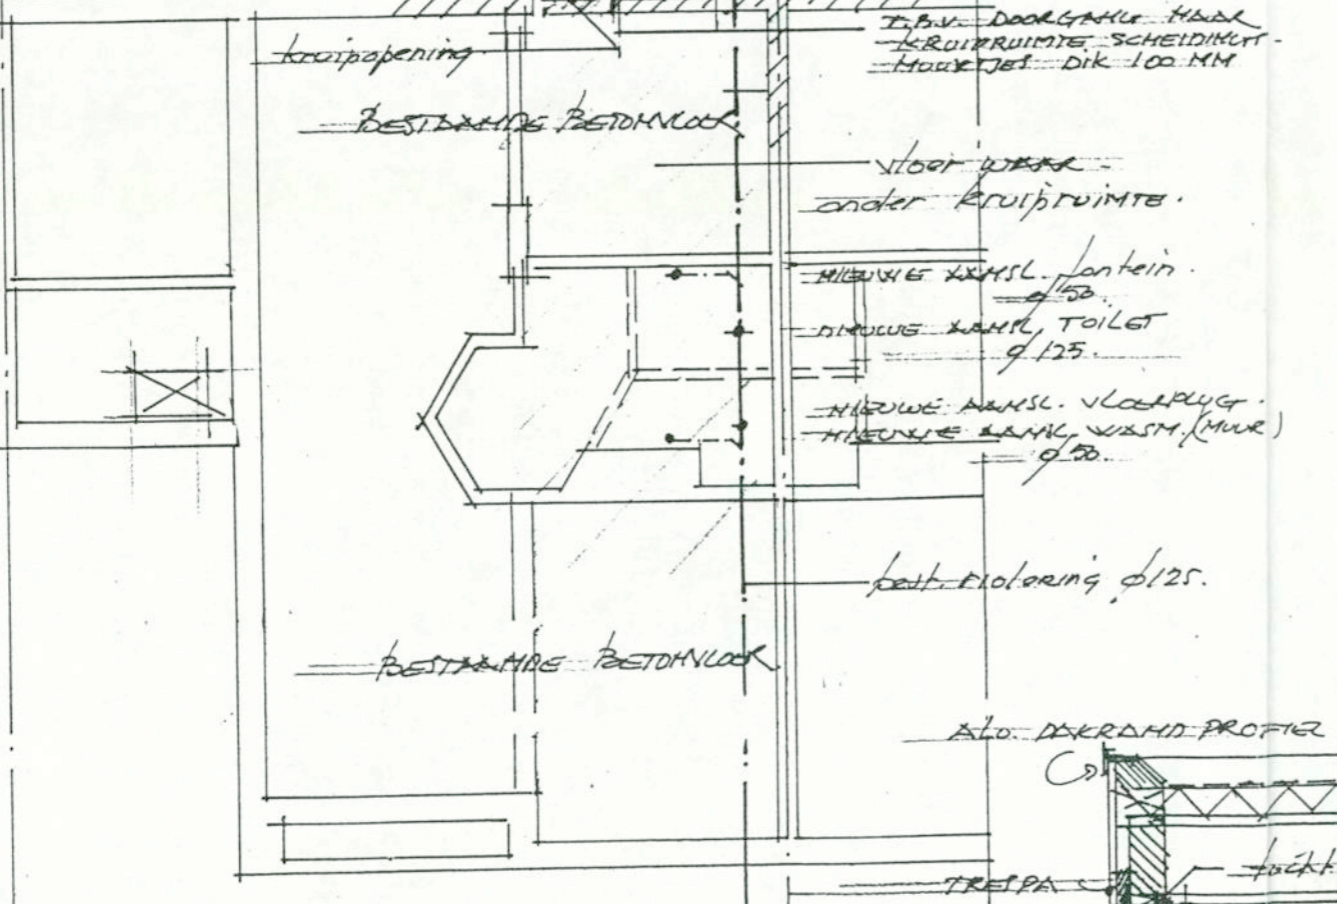 T.B.V. DOORGANG NAAR
KRUIPRUIMTE SCHEIDINGS-
MUURTJES DIK 100 MM
kruipopening
BESTAANDE BETONVLOER
vloer WAAR
onder kruipruimte.
NIEUWE AANSL. fontein.
ø 50.
NIEUWE AANSL. TOILET
ø 125.
NIEUWE AANSL. VLOERPLUG.
NIEUWE AANSL. WASM. (MUUR)
ø 50.
best. riolering ø125.
BESTAANDE BETONVLOER
ALU. DAKRAND PROFIEL
TRESPA